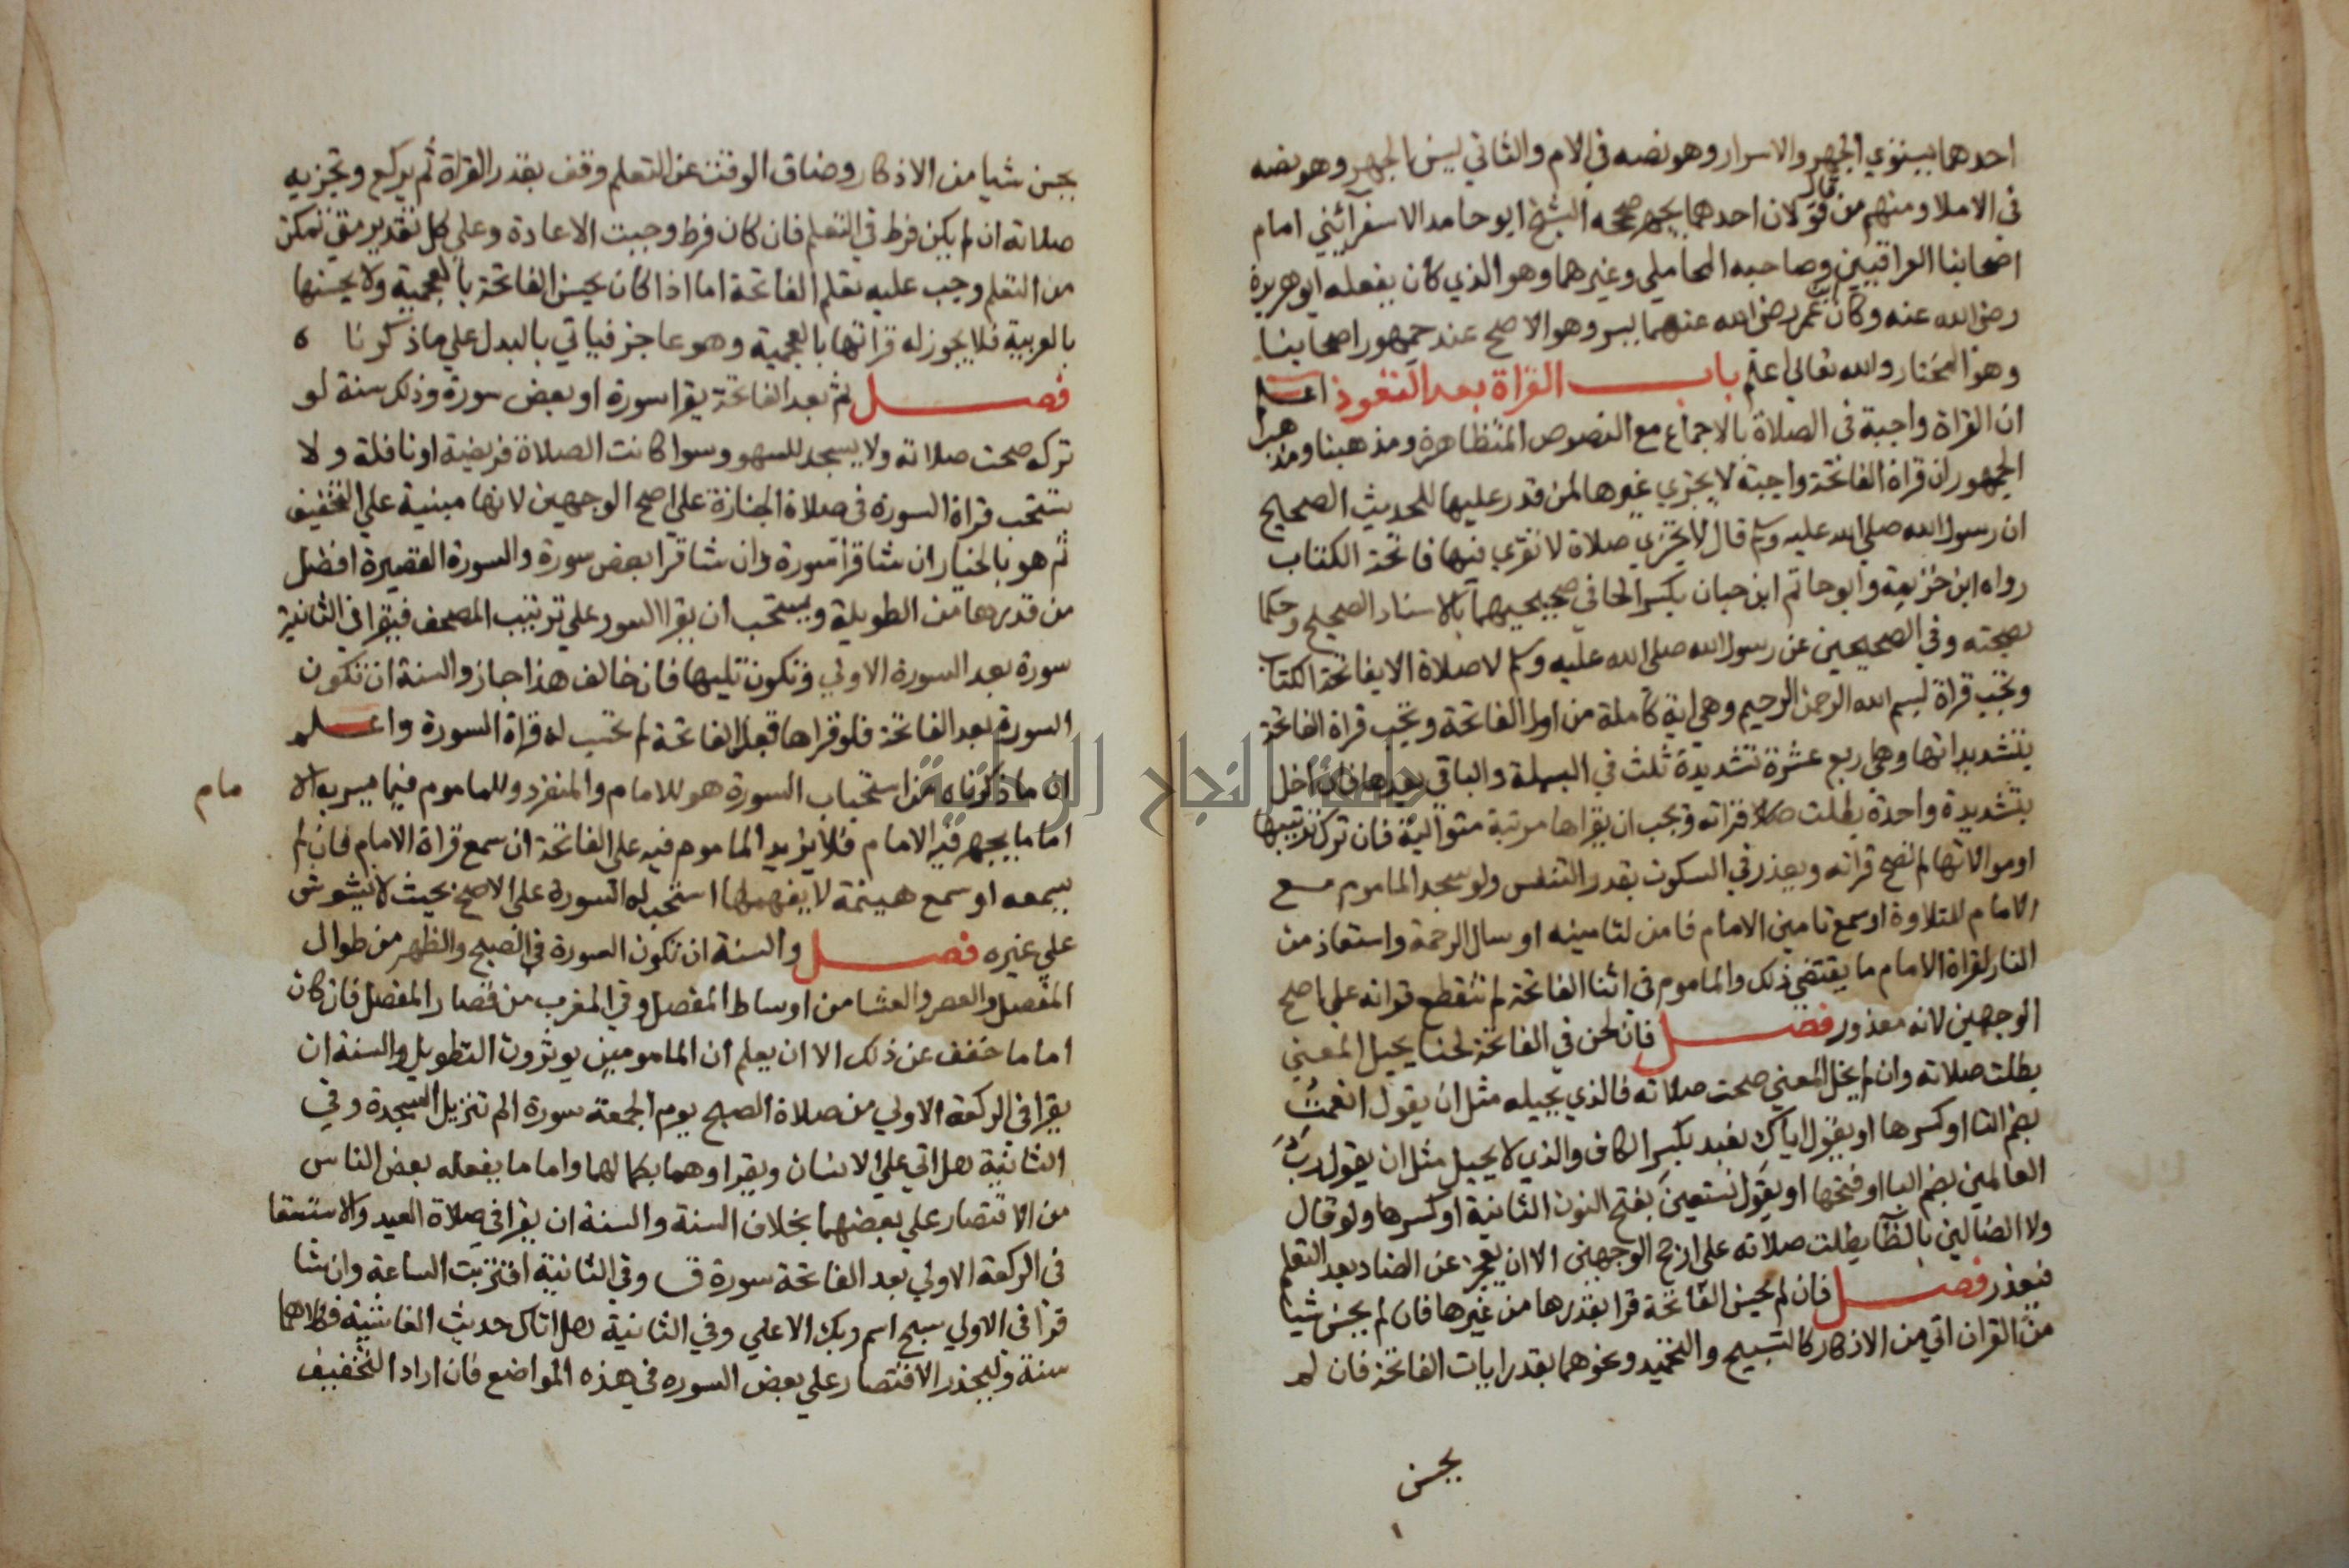 احدهما يستوي الجهر والاسرار وهو نصه في الام والثاني يسن الجهر وهو نصه
في الاملا ومنهم من قال قولان احدهما يجهر صححه الشيخ ابو حامد الاسفرائني امام
اصحابنا العراقيين وصاحبه المحاملي وغيرهما وهو الذي كان يفعله ابو هريرة
رضي الله عنه وكان ابن عمر رضي الله عنهما يسر وهو الاصح عند جمهور اصحابنا
وهو المختار والله تعالي اعلم باب القراة بعد التعوذ اعلم
ان القراة واجبة في الصلاة بالاجماع مع النصوص المتظاهرة ومذهبنا ومذهب
الجمهور ان قراة الفاتحة واجبة لا يجزي غيرها لمن قدر عليها للحديث الصحيح
ان رسول الله صلي الله عليه وسلم قال لا يجزي صلاة لا تقري فيها فاتحة الكتاب
رواه ابن خزيمة وابو حاتم ابن حبان بكسر الحا في صحيحيهما بالاسناد الصحيح وحكما
بصحته وفي الصحيحين عن رسول الله صلي الله عليه وسلم لا صلاة الا بفاتحة الكتاب
وتجب قراة بسم الله الرحمن الرحيم وهي اية كاملة من اول الفاتحة وتجب قراة الفاتحة
بتشديداتها وهي اربع عشرة تشديدة ثلث في البسملة والباقي بعدها فان اخل
بتشديدة واحدة بطلت قراته ويجب ان يقراها مرتبة متوالية فان ترك ترتيبها
او موالاتها لم تصح قراته ويعذر في السكوت بقدر التنفس ولو سجد الماموم مع
الامام للتلاوة او سمع تامين الامام فامن لتامينه او سال الرحمة واستعاذ من
النار لقراة الامام ما يقتضي ذلك والماموم في اثنا الفاتحة لم تنقطع قراته علي اصح
الوجهين لانه معذور فصل فان لحن في الفاتحة لحنا يحيل المعني
بطلت صلاته وان لم يخل المعني صحت صلاته فالذي يحيله مثل ان يقول انعمت
بضم التا او كسرها او يقول اياك نعبد بكسر الكاف والذي لا يحيل مثل ان يقول رب
العالمين بضم البا او فتحها او يقول نستعين بفتح النون الثانية او كسرها ولو قال
ولا الضالين بالظا بطلت صلاته علي ارجح الوجهين الا ان يعجز عن الضاد بعد التعلم
فيعذر فصل فان لم يحسن الفاتحة قرا بقدرها من غيرها فان لم يحسن شيا
من القران اتي من الاذكار كالتسبيح والتحميد ونحوهما بقدر ايات الفاتحة فان لم
يحسن
يحسن شيا من الاذكار وضاق الوقت عن التعلم وقف بقدر القراة ثم يركع وتجزيه
صلاته ان لم يكن فرط في التعلم فان كان فرط وجبت الاعادة وعلي كل تقدير متي تمكن
من التعلم وجب عليه تعلم الفاتحة اما اذا كان يحسن الفاتحة بالعجمية ولا يحسنها
بالعربية فلا يجوز له قراتها بالعجمية وهو عاجز فياتي بالبدل علي ما ذكرنا
فصل ثم بعد الفاتحة يقرا سورة او بعض سورة وذلك سنة لو
تركه صحت صلاته ولا يسجد للسهو وسوا كانت الصلاة فريضة او نافلة ولا
تستحب قراة السورة في صلاة الجنازة علي اصح الوجهين لانها مبنية علي التخفيف
ثم هو بالخيار ان شا قرا سورة وان شا قرا بعض سورة والسورة القصيرة افضل
من قدرها من الطويلة ويستحب ان يقرا السور علي ترتيب المصحف فيقرا في الثانية
سورة بعد السورة الاولي وتكون تليها فان خالف هذا جاز والسنة ان تكون
السورة بعد الفاتحة فلو قراها قبل الفاتحة لم تحسب له قراة السورة واعلم
ان ما ذكرناه من استحباب السورة هو للامام والمنفرد وللماموم فيما يسر به الا
مام
اما ما يجهر فيه الامام فلا يزيد الماموم فيه علي الفاتحة ان سمع قراة الامام فان لم
يسمعه او سمع هينمة لا يفهمها استحب له السورة علي الاصح بحيث لا يشوش
علي غيره فصل والسنة ان تكون السورة في الصبح والظهر من طوال
المفصل والعصر والعشا من اوساط المفصل وفي المغرب من قصار المفصل فان كان
اماما خفف عن ذلك الا ان يعلم ان المامومين يوثرون التطويل والسنة ان
يقرا في الركعة الاولي من صلاة الصبح يوم الجمعة سورة الم تنزيل السجدة وفي
الثانية هل اتي علي الانسان ويقراوهما بكمالهما واما ما يفعله بعض الناس
من الاقتصار علي بعضهما بخلاف السنة والسنة ان يقرا في صلاة العيد والاستسقا
في الركعة الاولي بعد الفاتحة سورة ق وفي الثانية اقتربت الساعة وان شا
قرا في الاولي سبح اسم ربك الاعلي وفي الثانية هل اتاك حديث الغاشية فكلاهما
سنة وليحذر الاقتصار علي بعض السوره في هذه المواضع فان اراد التخفيف
النجاح الوطنية